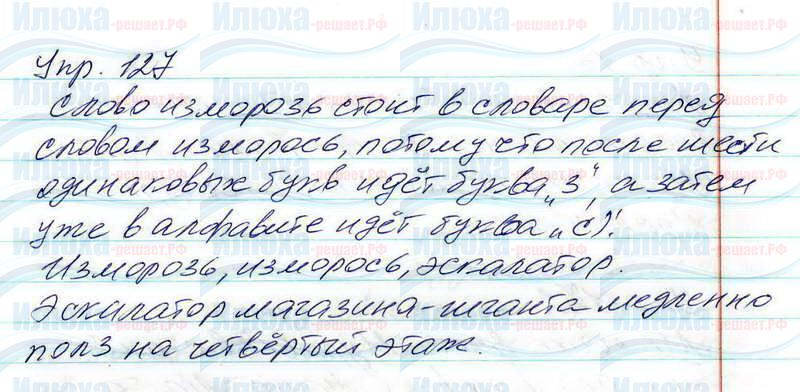 Упр. 127
Слово изморозь стоит в словаре перед
словом изморось, потому что после шести
одинаковых букв идёт буква „з“, а затем
уже в алфавите идёт буква „с“.
Изморозь, изморось, эскалатор.
Эскалатор магазина-гиганта медленно
полз на четвёртый этаж.